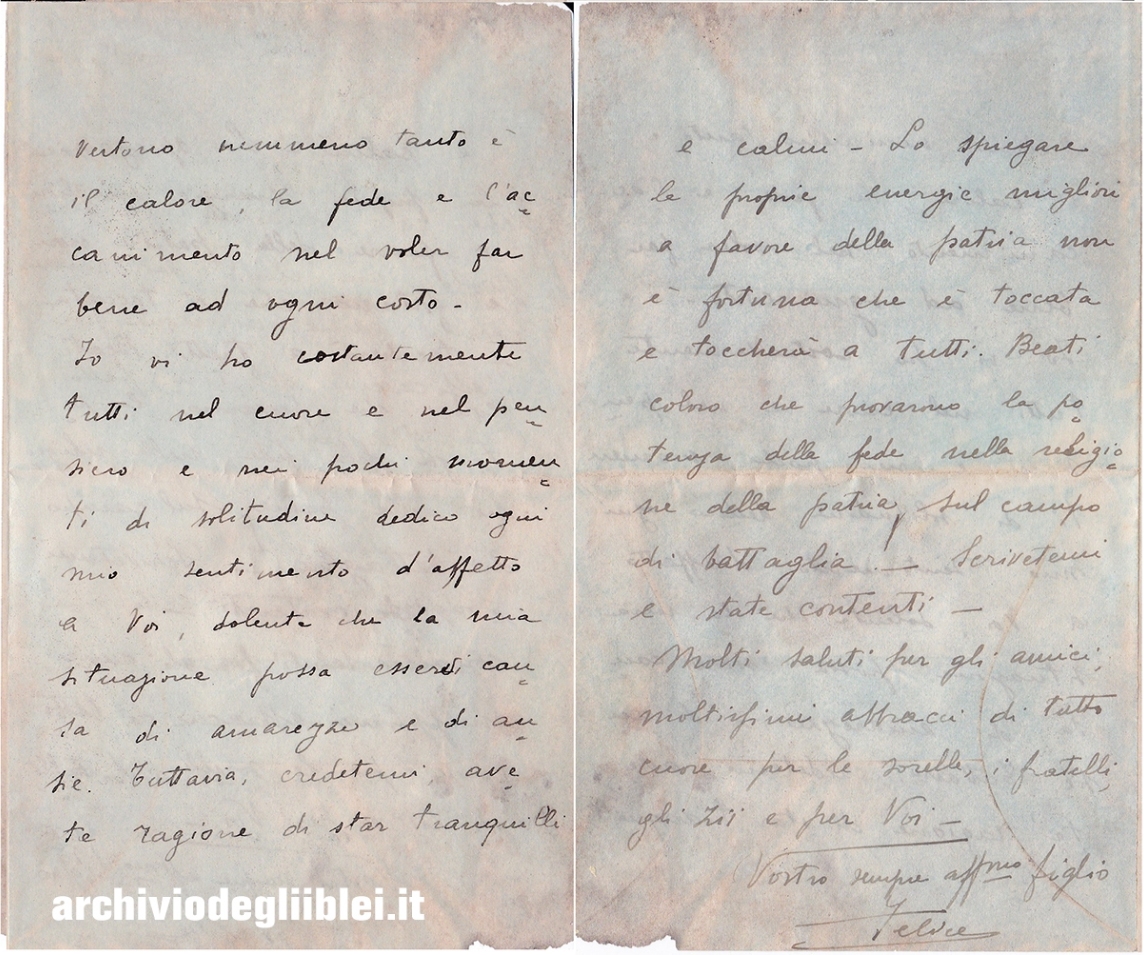 vertono nemmeno tanto è
il calore, la fede e l'ac
canimento nel voler far
bene ad ogni costo -
Io vi ho costantemente
tutti nel cuore e nel pen
siero e nei pochi momen
ti di solitudine dedico ogni
mio sentimento d'affetto
a Voi, dolente che la mia
situazione possa esservi cau
sa di amarezze e di an
sie. Tuttavia, credetemi, ave
te ragione di star tranquilli
e calmi - Lo spiegare
le proprie energie migliori
a favore della patria non
è fortuna che è toccata
e toccherà a tutti. Beati
coloro che provarono la po
tenza della fede nella religio
ne della patria, sul campo
di battaglia! — Scrivetemi
e state contenti —
Molti saluti per gli amici,
moltissimi abbracci di tutto
cuore per le sorelle, i fratelli,
gli zii e per Voi —
Vostro sempre aff.mo figlio
Felice
archiviodegliiblei.it